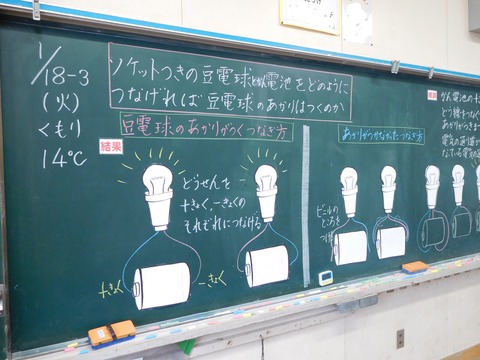 1/18-3
(火)
くもり
14℃
ソケットつきの豆電球とかん電池をどのように
つなげれば豆電球のあかりはつくのか
豆電球のあかりがつくつなぎ方
結果
どうせんを
+きょく、-きょくの
それぞれにつなげる
+きょく
-きょく
あかりがつかなかったつなぎ方
ビニルの
ところを
かん電池の+
どう線をつな
あかりがつきま
電気の通り道が
なっている